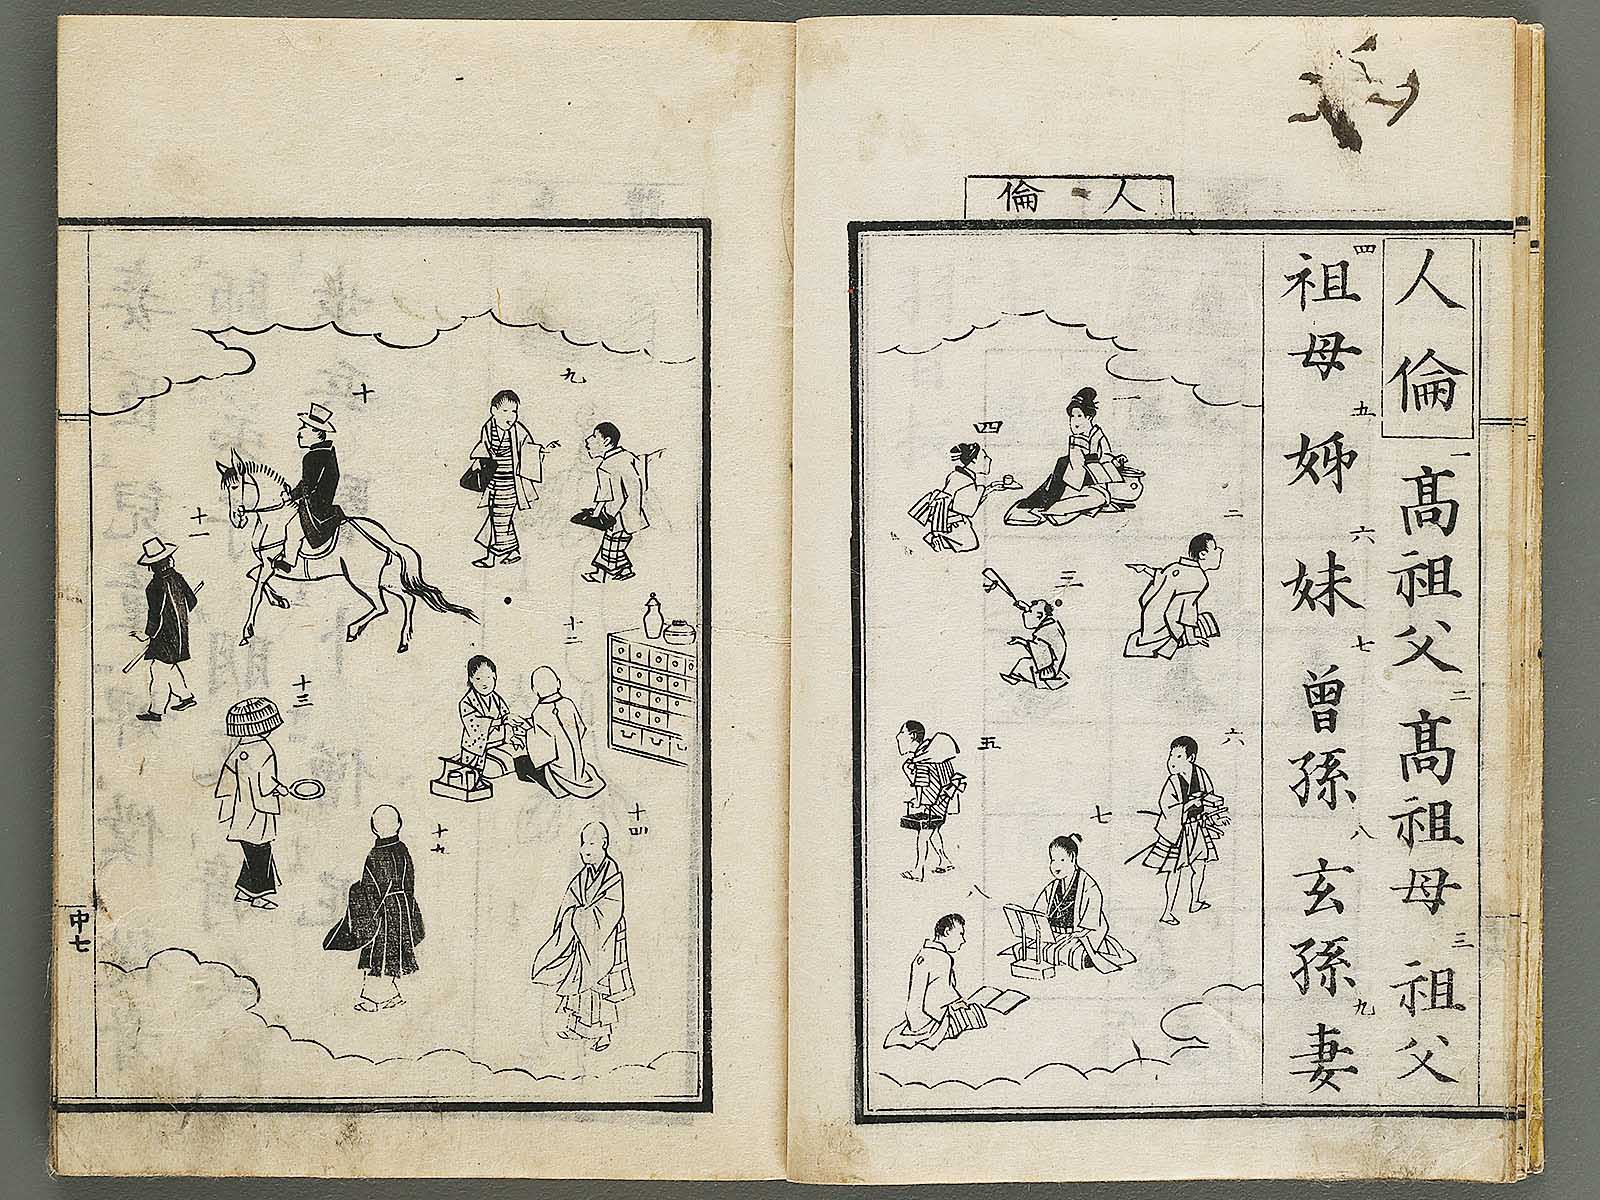 人倫
人倫 一髙祖父 二髙祖母 三祖父
四祖母 五姊 六妹 七曾孫 八玄孫 九妻
一
四
二
三
五
六
七
八
九
十
十一
十二
十三
十四
中七